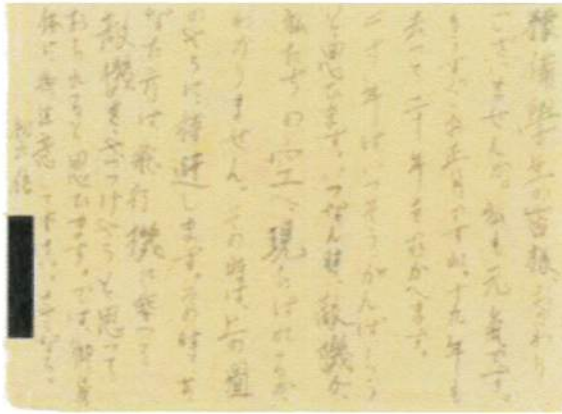 學生の皆様、おかわり
ございませんか。私も元氣です。
もうすぐお正月ですね。十九年も
去つて二十年をむかへます。
二十年はいつそうがんばらう
と思ひます。いつなん時、敵機が、
私たちの空へ現はれるか
わかりません。その時は、上の圖
のやうに待避します。その時、あ
なた方は飛行機に乗つて
敵機をやつつけやうと思つて
おられると思ひます。では御身
体に御注意して下さい。さやうなら。